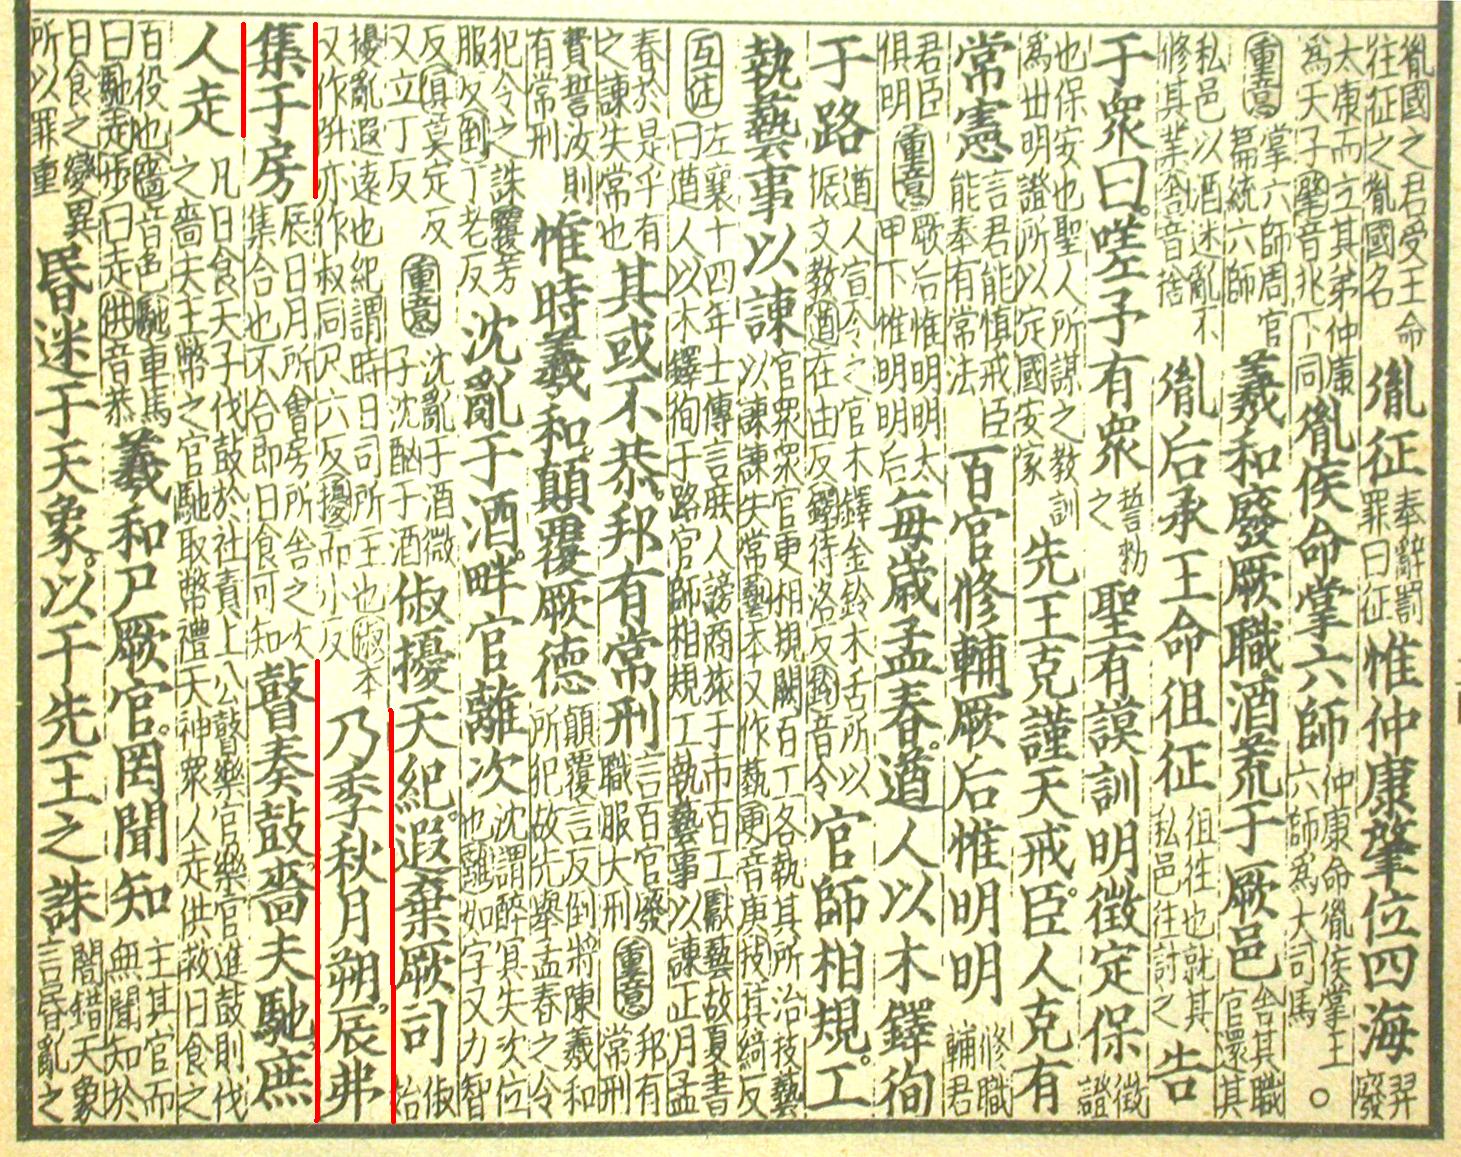 胤國之君受王命往征之胤國名胤征奉辭罰罪曰征惟仲康肇位四海羿廢
太康而立其弟仲康為天子肇音兆下同胤侯命掌六師仲康命胤侯掌王六師為大司馬○
重意掌六師周官篇統六師羲和廢厥職酒荒于厥邑舍其職官還其
私邑以酒迷亂不修其業舍音捨胤后承王命徂征徂往也就其私邑往討之告
于眾曰。嗟予有眾誓勑之聖有謨訓明徵定保徵證
也保安也聖人所謀之教訓為世明證所以定國安家先王克謹天戒。臣人克有
常憲言君能慎戒臣能奉有常法百官修輔厥后惟明明修職輔君
君臣俱明重意厥后惟明明太甲下惟明明后每歲孟春。遒人以木鐸徇
于路遒人宣令之官木鐸金鈴木舌所以振文教遒在由反鐸待洛反鈴音令官師相規。工
執藝事以諫官眾眾官更相規闕百工各執其所治技藝以諫諫失常藝本又作蓺更音庚技其綺反
互註左襄十四年士傳言庶人謗商旅于市百工獻藝故夏書曰遒人以木鐸徇于路官師相規工執藝事以諫正月孟
春於是乎有之諫失常也其或不恭。邦有常刑言百官廢職服大刑重意邦有常刑
費誓汝則有常刑惟時羲和。顛覆厥德顛覆言反倒將陳羲和所犯故先舉孟春之令
犯令之誅覆芳服反倒丁老反沈亂于酒。畔官離次沈謂醉冥失次位也離如字又力智
反冥莫定反又立丁反重意沈亂于酒微子沈酗于酒俶擾天紀。遐棄厥司俶始
擾亂遐遠也紀謂時日司所主也俶本又作亦作叔同尺六反擾而小反乃季秋月朔。辰弗
集于房辰日月所會房所舍之次集合也不合即日食可知瞽奏鼓嗇夫馳庶
人走凡日食天子伐鼓於社責上公瞽樂官樂官進鼓則伐之嗇夫主幣之官馳取幣禮天神眾人走供救日食之
百役也嗇音色馳車馬曰馳走步曰走供音恭羲和尸厥官。罔聞知主其官而無聞知於
日食之變異所以罪重昏迷于天象。以干先王之誅闇錯天象言昏亂之